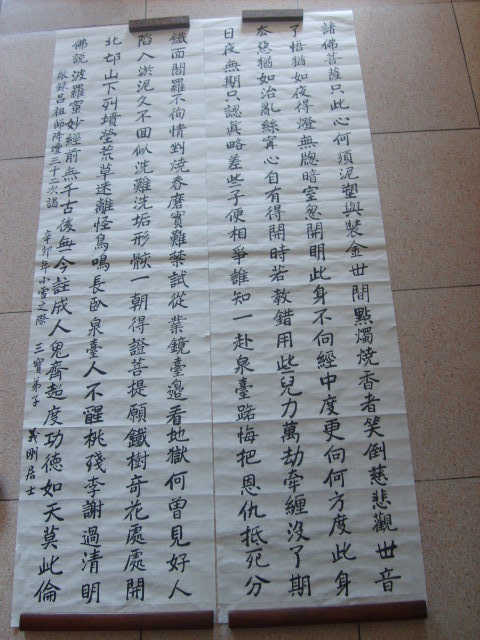 諸佛菩薩只此心何須泥塑與裝金世間點燭燒香者笑倒慈悲觀世音
了悟猶如夜得燈無牕暗室忽開明此身不向經中度更向何方度此身
忿慾猶如治亂絲寧心自有得開時若教錯用些兒力萬劫牽纏沒了期
日夜無期只認真略差些子便相爭誰知一赴泉臺路悔把恩仇抵死分
鐵面閻羅不徇情剉燒舂磨實難禁試從業鏡臺邊看地獄何曽見好人
陷入淤泥久不回似洗難洗垢形骸一朝得證菩提願鐵樹奇花處處開
北邙山下列墳塋荒草迷離怪鳥鳴長臥泉臺人不醒桃殘李謝過清明
佛説波羅蜜妙經前無千古後無今註成人鬼齊超度功德如天莫此倫
敬錄呂祖師降壇三十二次詣 辛卯年小雪之際 三寶弟子 義剛居士